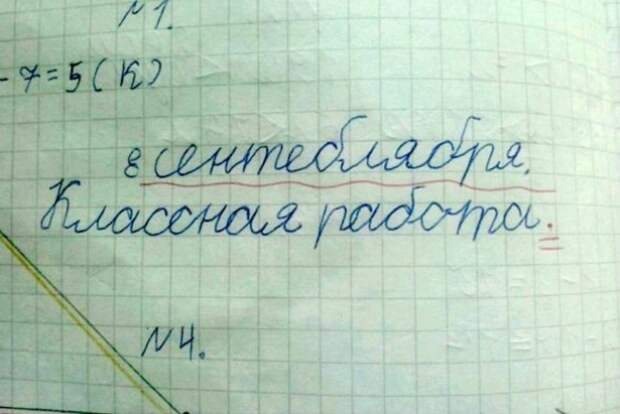 №1.
- 7=5 (К)
8 сентеблября.
Классная работа.
№4.